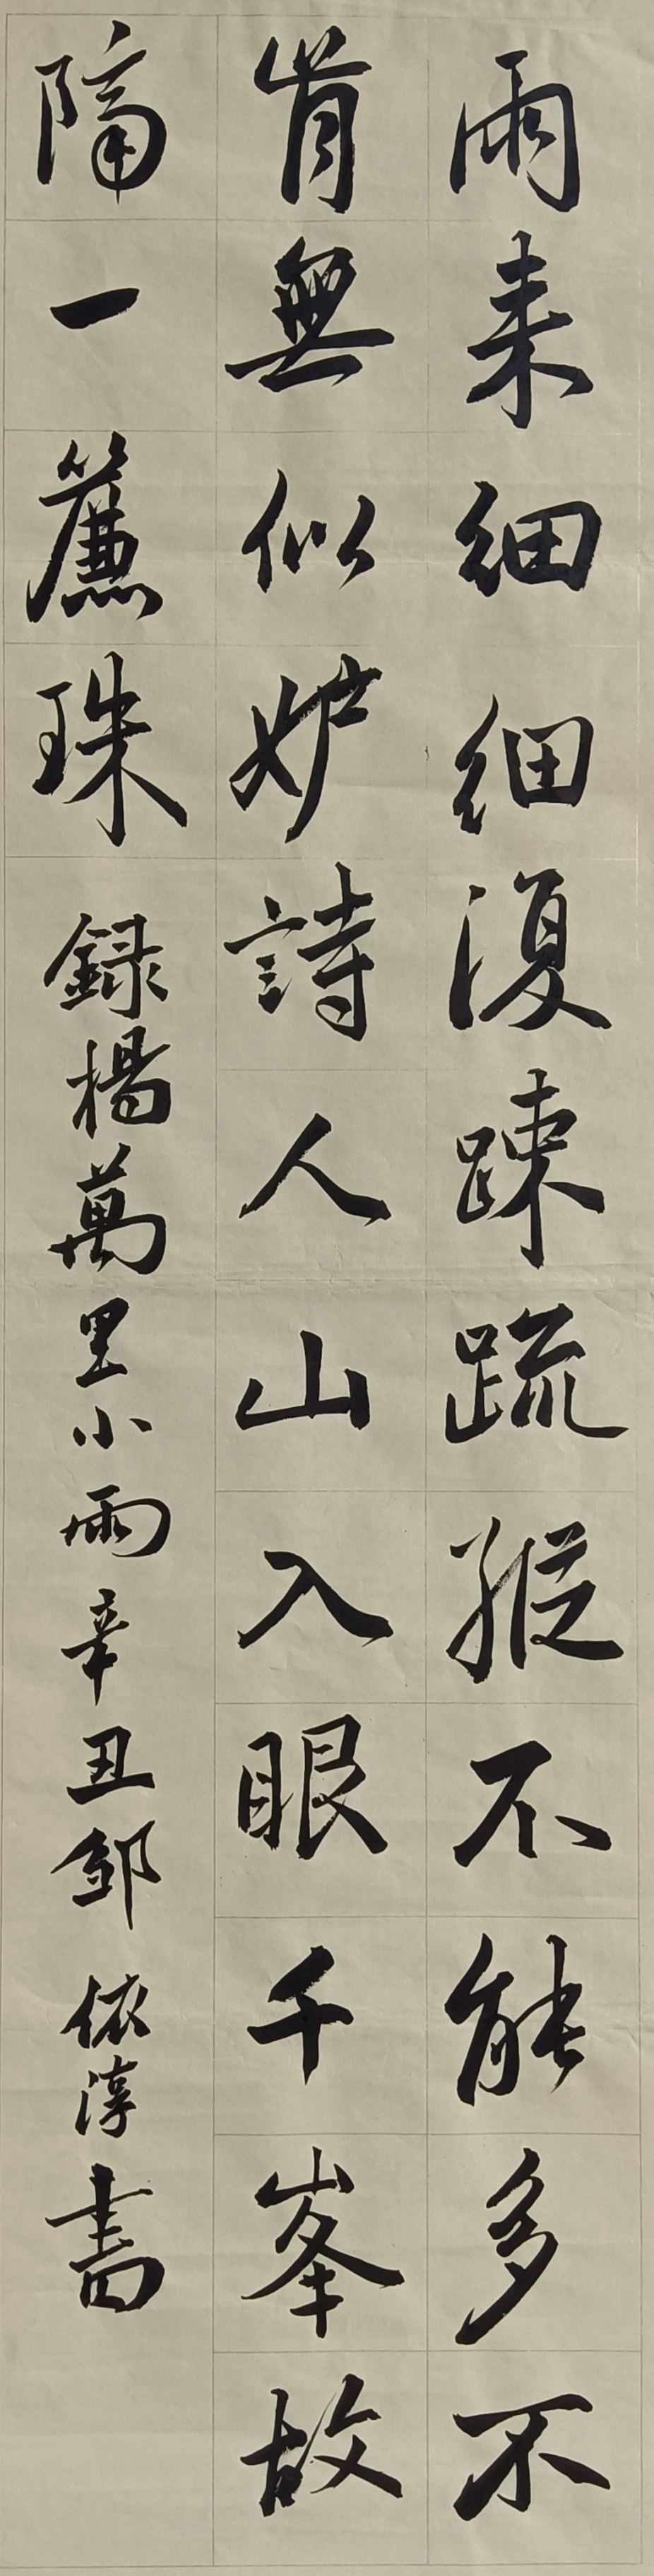 雨来細細復踈疏縱不能多不
肯無似妒詩人山入眼千峯故
隔一簾珠 録楊萬里小雨辛丑鄒依淳書